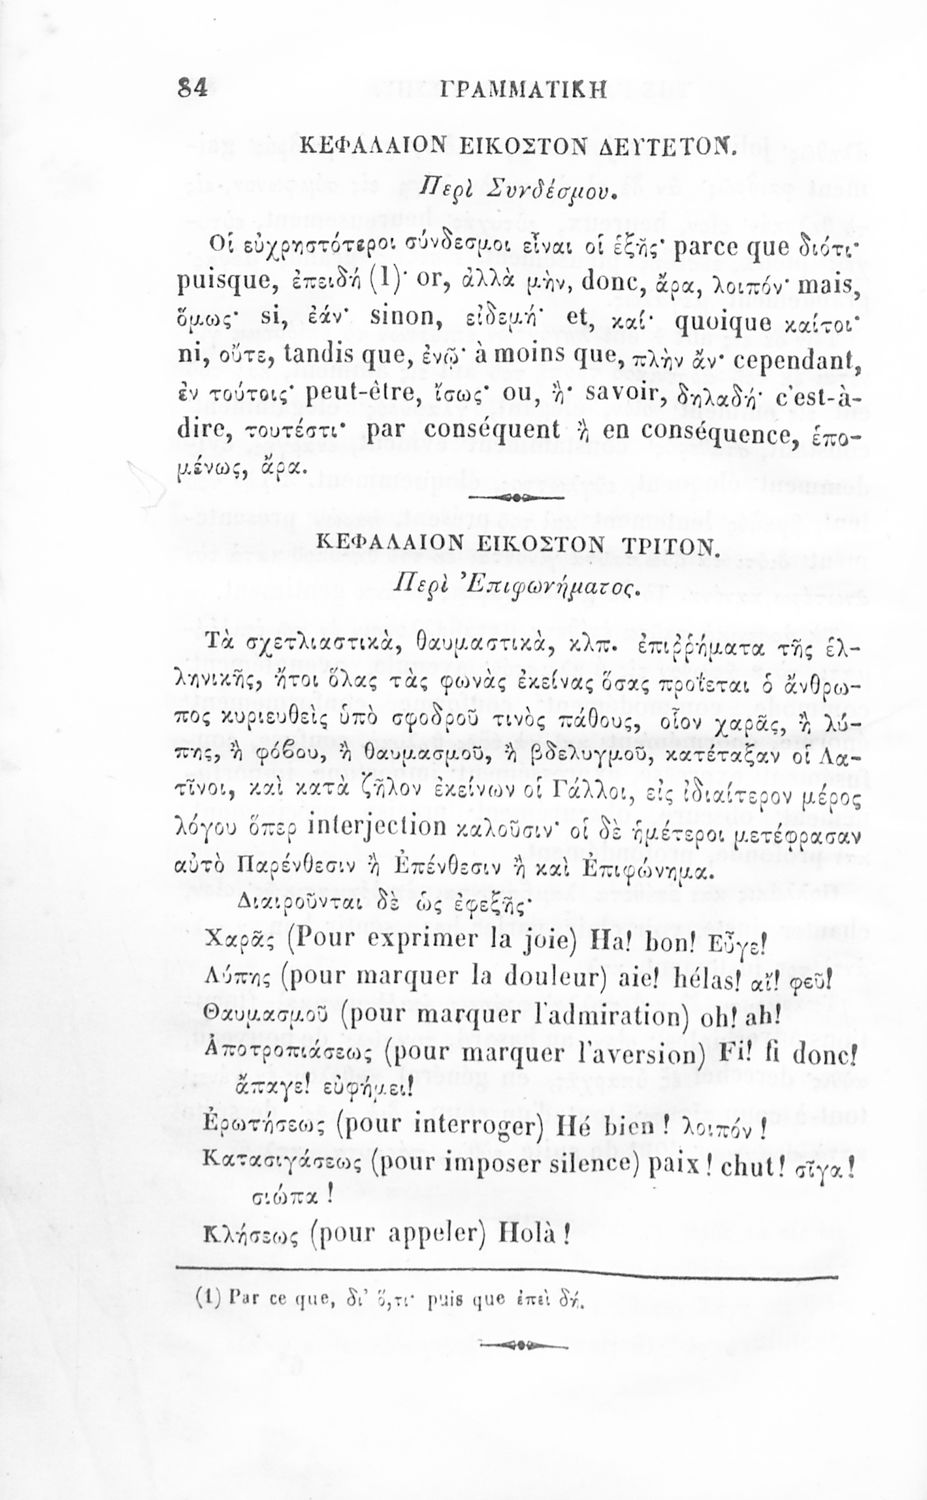 84 ΓΡΑΜΜΑΤΙΚΗ
ΚΕΦΑΛΑΙΟΝ ΕΙΚΟΣΤΟΝ ΔΕΥΤΕΤΟΝ.
Περὶ Συνδέσμου.
Οἱ εὐχρηστότεροι σύνδεσμοι εἶναι οἱ ἑξῆς· parce que διότι·
puisque, ἐπειδή (1)· or, ἀλλὰ μὴν, donc, ἄρα, λοιπόν· mais,
ὅμως· si, ἐάν· sinon, εἰδεμή· et, καί· quoique καίτοι·
ni, οὔτε, tandis que, ἐνῷ· à moins que, πλὴν ἄν· cependant,
ἐν τούτοις· peut-être, ἴσως· ou, ἤ· savoir, δηλαδή· c'est-à-
dire, τουτέστι· par conséquent ἢ en conséquence, ἑπο-
μένως, ἄρα.
ΚΕΦΑΛΑΙΟΝ ΕΙΚΟΣΤΟΝ ΤΡΙΤΟΝ.
Περὶ Ἐπιφωνήματος.
Τὰ σχετλιαστικὰ, θαυμαστικὰ, κλπ. ἐπιῤῥήματα τῆς ἑλ-
ληνικῆς, ἤτοι ὅλας τὰς φωνὰς ἐκείνας ὅσας προΐεται ὁ ἄνθρω-
πος κυριευθεὶς ὑπὸ σφοδροῦ τινὸς πάθους, οἷον χαρᾶς, ἢ λύ-
πης, ἢ φόβου, ἢ θαυμασμοῦ, ἢ βδελυγμοῦ, κατέταξαν οἱ Λα-
τῖνοι, καὶ κατὰ ζῆλον ἐκείνων οἱ Γάλλοι, εἰς ἰδιαίτερον μέρος
λόγου ὅπερ interjection καλοῦσιν· οἱ δὲ ἡμέτεροι μετέφρασαν
αὐτὸ Παρένθεσιν ἢ Ἐπένθεσιν ἢ καὶ Ἐπιφώνημα.
Διαιροῦνται δὲ ὡς ἐφεξῆς·
Χαρᾶς (Pour exprimer la joie) Ha! bon! Εὖγε!
Λύπης (pour marquer la douleur) aie! hélas! αἴ! φεῦ!
Θαυμασμοῦ (pour marquer l'admiration) oh! ah!
Ἀποτροπιάσεως (pour marquer l'aversion) Fi! fi donc!
ἄπαγε! εὐφήμει!
Ἐρωτήσεως (pour interroger) Hé bien! λοιπόν!
Κατασιγάσεως (pour imposer silence) paix! chut! σῖγα!
σιώπα!
Κλήσεως (pour appeler) Holà!
(1) Par ce que, δι' ὅ,τι· puis que ἐπεὶ δή.